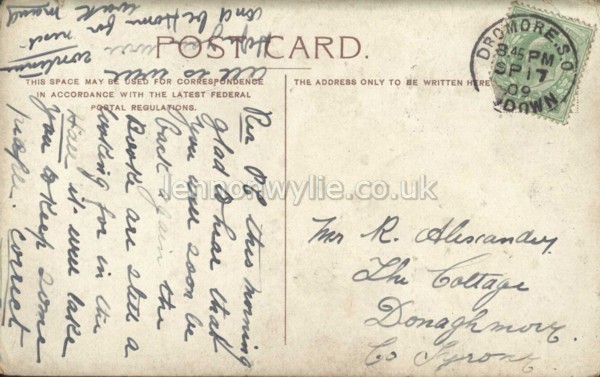 POST CARD.
THIS SPACE MAY BE USED FOR CORRESPONDENCE
IN ACCORDANCE WITH THE LATEST FEDERAL
POSTAL REGULATIONS.
THE ADDRESS ONLY TO BE WRITTEN HERE
DROMORE. S.O
8 45 PM
SP 17
09
DOWN
Rec P.C this morning
glad to hear that
you will soon be
back again the
Books are still a
wanting for in the
Hall it will take
you to keep some
people correct
all is well
Hope
and be Home for next
week
Mr R. Alexander,
The Cottage
Donaghmore
Co Tyrone
lennonwylie.co.uk